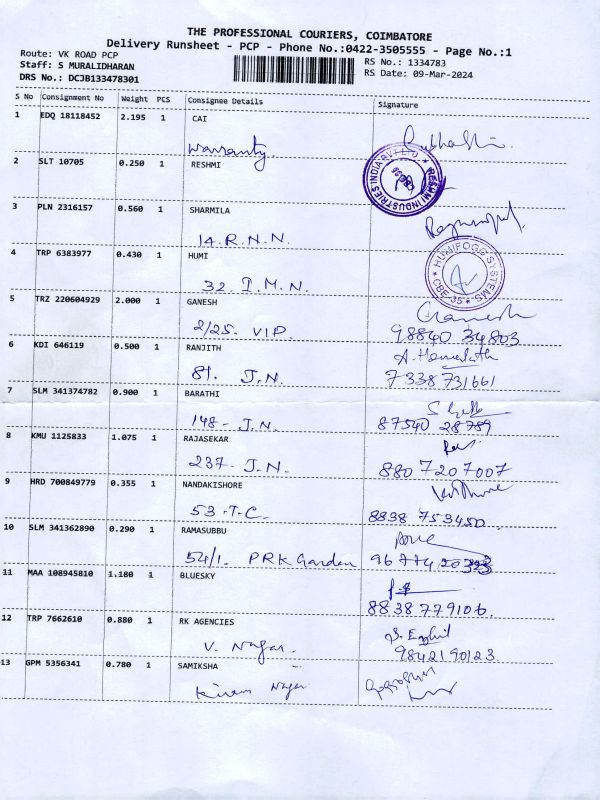 THE PROFESSIONAL COURIERS, COIMBATORE
Delivery Runsheet - PCP - Phone No.:0422-3505555 - Page No.:1
Route: VK ROAD PCP
Staff: S MURALIDHARAN
DRS No.: DCJB133478301
RS No.: 1334783
RS Date: 09-Mar-2024
S No Consignment No Weight PCS Consignee Details Signature
1 EDQ 18118452 2.195 1 CAI
Warranty
2 SLT 10705 0.250 1 RESHMI
RESAMI INDUSTRIES INDIA PVT LTD
3 PLN 2316157 0.560 1 SHARMILA
14. R.N.N.
4 TRP 6383977 0.430 1 HUMI
HUMIFOG SYSTEMS
CBE-35
32 I.M.N.
5 TRZ 220604929 2.000 1 GANESH
2/25. VIP. 98840 34803
6 KDI 646119 0.500 1 RANJITH
81. J.N. 7338731661
7 SLM 341374782 0.900 1 BARATHI
148- J.N. 87540 28789
8 KMU 1125833 1.075 1 RAJASEKAR
237- J.N. 880 7207007
9 HRD 700849779 0.355 1 NANDAKISHORE
53-T.C. 8838 753450
10 SLM 341362890 0.290 1 RAMASUBBU
54/1. PRK Garden
11 MAA 108945810 1.180 1 BLUESKY
8838779106.
12 TRP 7662610 0.880 1 RK AGENCIES
S. Ezhil
V. Nagar. 9842190123
13 GPM 5356341 0.780 1 SAMIKSHA
Nagar